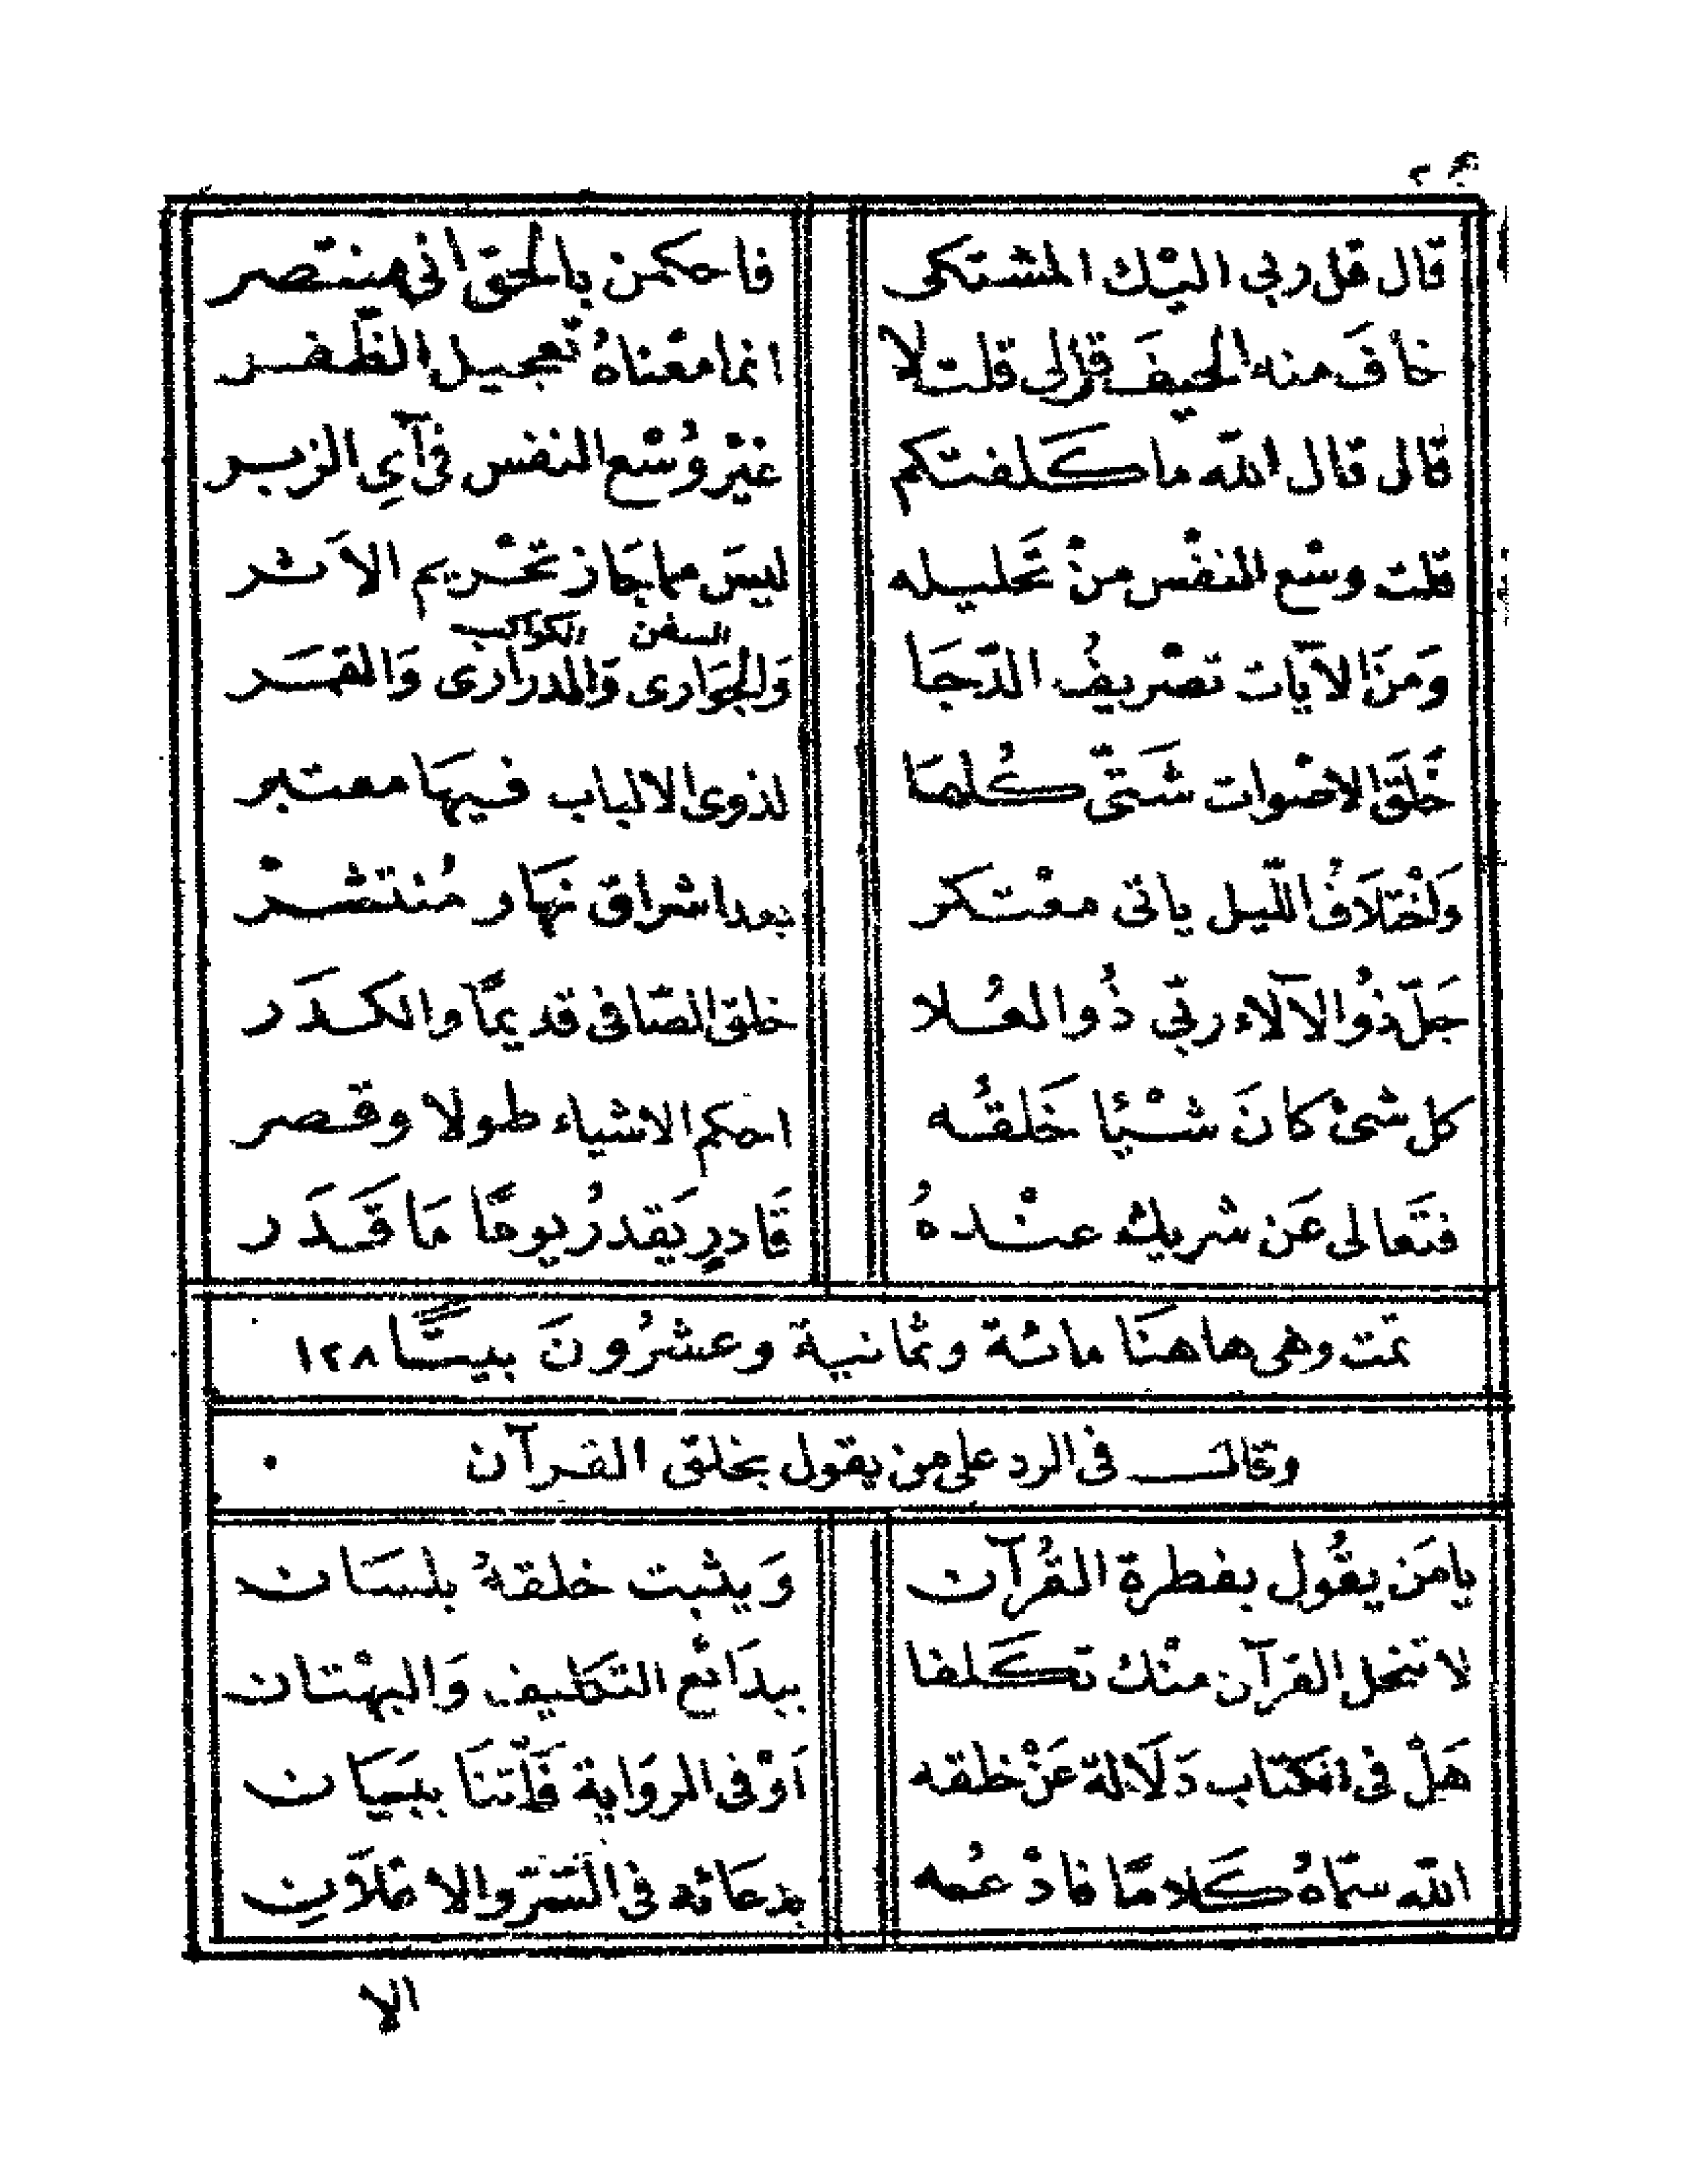 قال قل ربي اليْك المشتكى فاحكمن بالحق اني منتصر
خافَ منه الحيفَ قال لى قلت لا انما معْناهُ تعجيل الظّفر
قال قال الله ما كَلفتكم غيْر وُسْع النفس فى آيِ الزبر
قلت وسْع النفْس منْ تَحليله ليسَ مما جَاز تحْريم الاَثر
السفن الكواكب
وَمنَ الآيات تصْريفُ الدّجَا وَالجوَارى وَالدرَارى وَالقمَر
خَلَقَ الاصْوات شَتّى كُلهَا لذوى الالباب فيهَا معتبر
وَلخْتلَافُ اللّيل ياتى معْتكر بعد اشراق نهَار مُنتشرْ
جَلّ ذُو الآلاء ربّي ذُو العُلا خلق الصّافى قديمًا والكدَر
كل شئ كانَ شيْئا خَلقُه احكم الاشياء طولا وقصر
فتَعالى عَن شريك عنْدهُ قَادرٍ يَقدرُ يومًا مَا قَدَر
تمت وهى هاهنَا مائة وثمانية وعشرُونَ بيتًا ١٢٨
وقال فى الرد على من يقول بخلق القرآن
يا مَن يقُول بفطرة القُرآن وَيثبت خلقهُ بلسَان
لا تنحل القرآن منْك تكَلفا ببدَائع التكليف وَالبهْتان
هَلْ فى الكتاب دَلَالة عَنْ خلقه اَوْ فى الروَاية فَأتنَا ببَيَان
الله سمّاهُ كَلامًا فادْعُه بدعَائه فى السّرّ والاعْلَانِ
الا